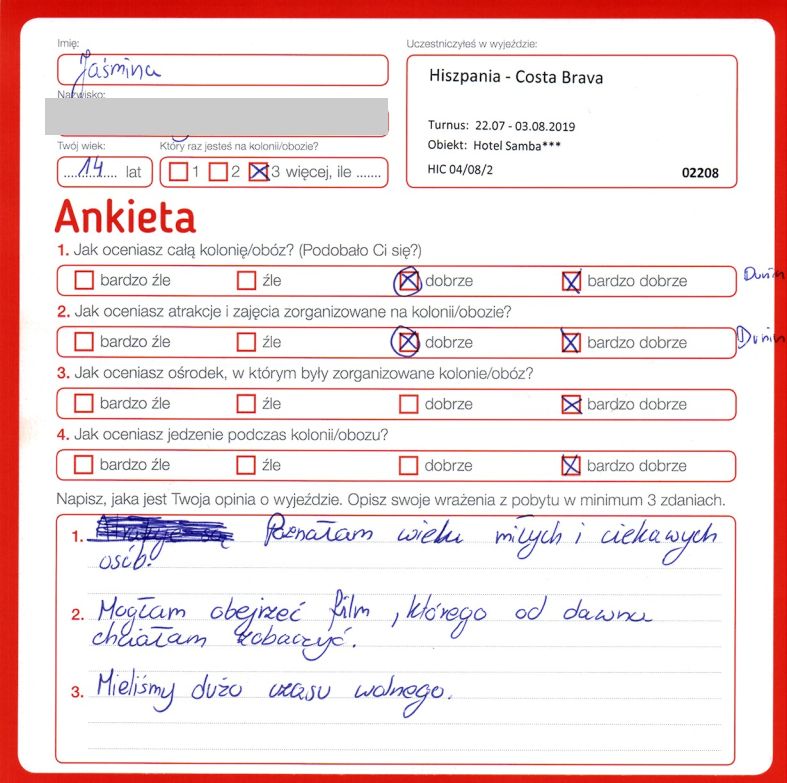 Imię:
Jaśmina
Nazwisko:
Twój wiek:
14 lat
Który raz jesteś na kolonii/obozie?
1 2 3 więcej, ile .......
Uczestniczyłeś w wyjeździe:
Hiszpania - Costa Brava
Turnus: 22.07 - 03.08.2019
Obiekt: Hotel Samba***
HIC 04/08/2 02208
Ankieta
1. Jak oceniasz całą kolonię/obóz? (Podobało Ci się?)
bardzo źle źle dobrze bardzo dobrze
2. Jak oceniasz atrakcje i zajęcia zorganizowane na kolonii/obozie?
bardzo źle źle dobrze bardzo dobrze
3. Jak oceniasz ośrodek, w którym były zorganizowane kolonie/obóz?
bardzo źle źle dobrze bardzo dobrze
4. Jak oceniasz jedzenie podczas kolonii/obozu?
bardzo źle źle dobrze bardzo dobrze
Napisz, jaka jest Twoja opinia o wyjeździe. Opisz swoje wrażenia z pobytu w minimum 3 zdaniach.
1. Poznałam wielu miłych i ciekawych
osób.
2. Mogłam obejrzeć film, którego od dawna
chciałam zobaczyć.
3. Mieliśmy dużo czasu wolnego.